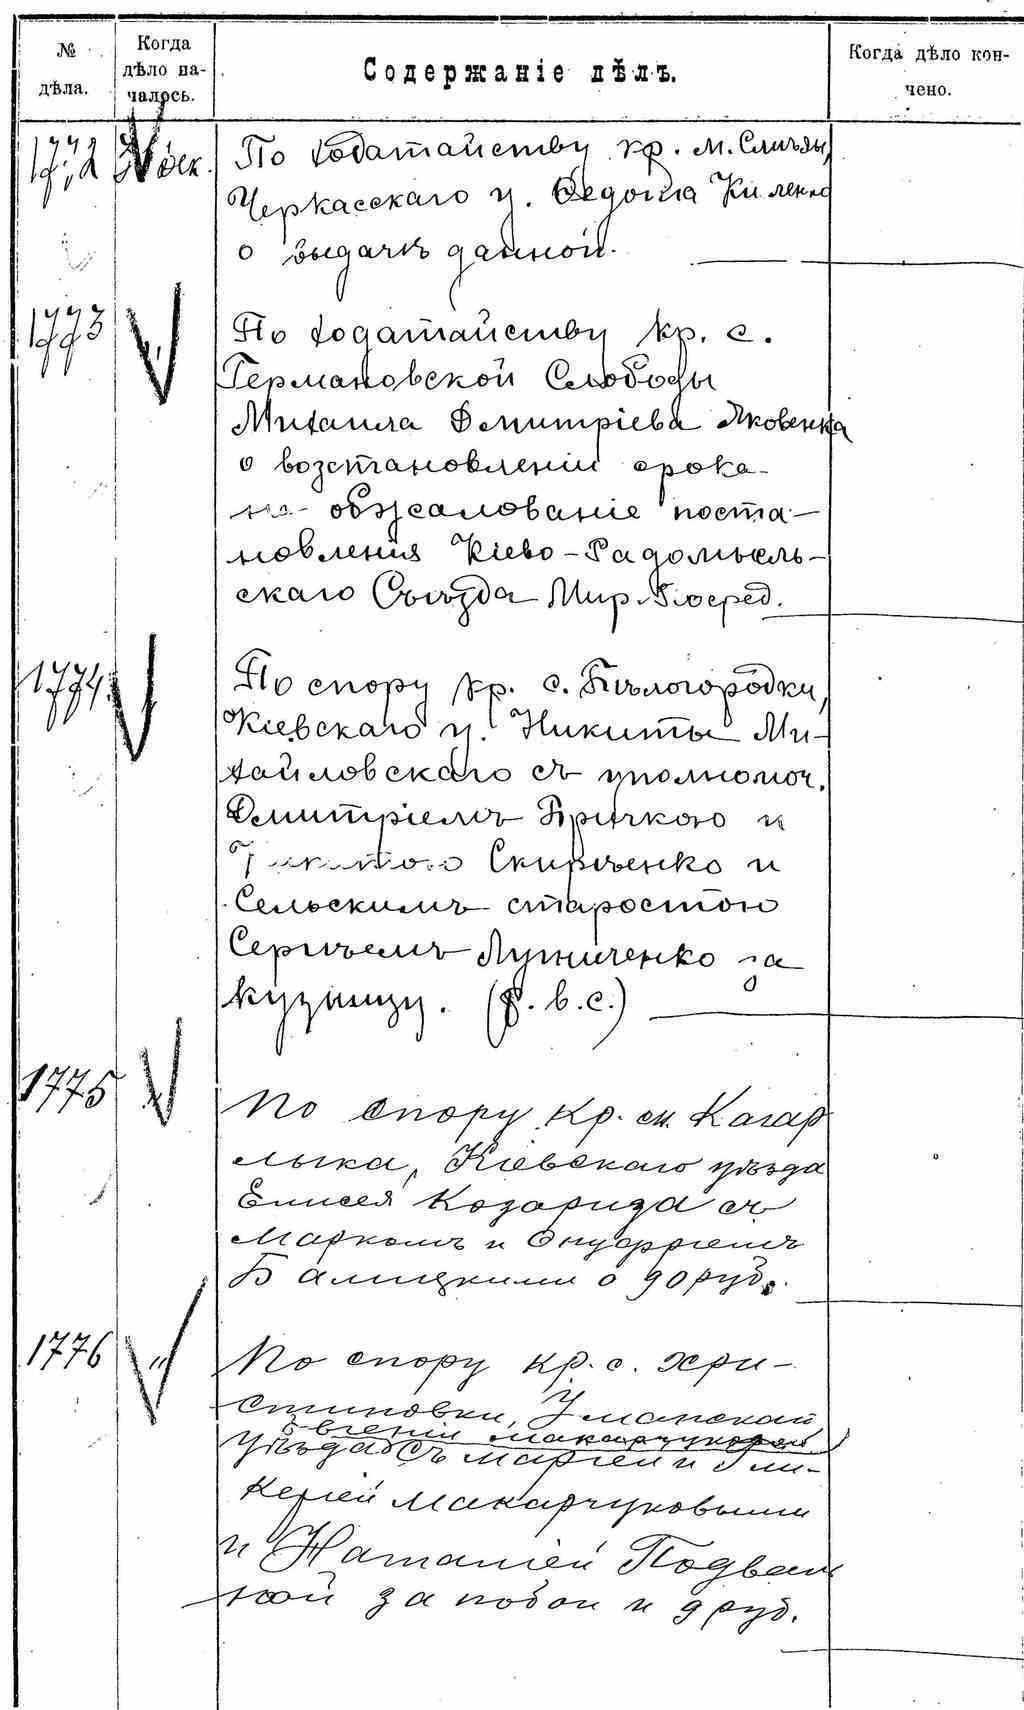 № дѣла.
Когда дѣло на-
чалось.
Содержаніе дѣлъ.
Когда дѣло кон-
чено.
1772
По ходатайству кр. м. Смѣлы,
Черкасскаго у. Ѳедота
о выдачѣ данной.
1773
"
По ходатайству кр. с.
Германовской Слободы
Михаила Дмитріева Яковенка
о возстановленіи срока
на обжалованіе поста-
новленія Кіево-Радомысль-
скаго Съѣзда Мир. Посред.
1774.
По спору кр. с. Бѣлогородки,
Кіевскаго у. Никиты Ми-
хайловскаго съ уполномоч.
Дмитріемъ Бричкою и
Скирченко и
Сельскимъ старостою
Сергѣемъ Лугиченко за
кузницу. (р. в. с.)
1775
"
По спору кр. м. Кагар
лыка, Кіевскаго уѣзда
Елисея Козариза съ
Маркомъ и Онуфріемъ
Балицкими о 90 руб.
1776
"
По спору кр. с. Хри-
стиновки, Уманскаго
Евгеніи Макарчуковой
уѣзда съ Маріей и Гли-
керіей Макарчуковыми
и Наталіей Подваль
ной за побои и 9 руб.